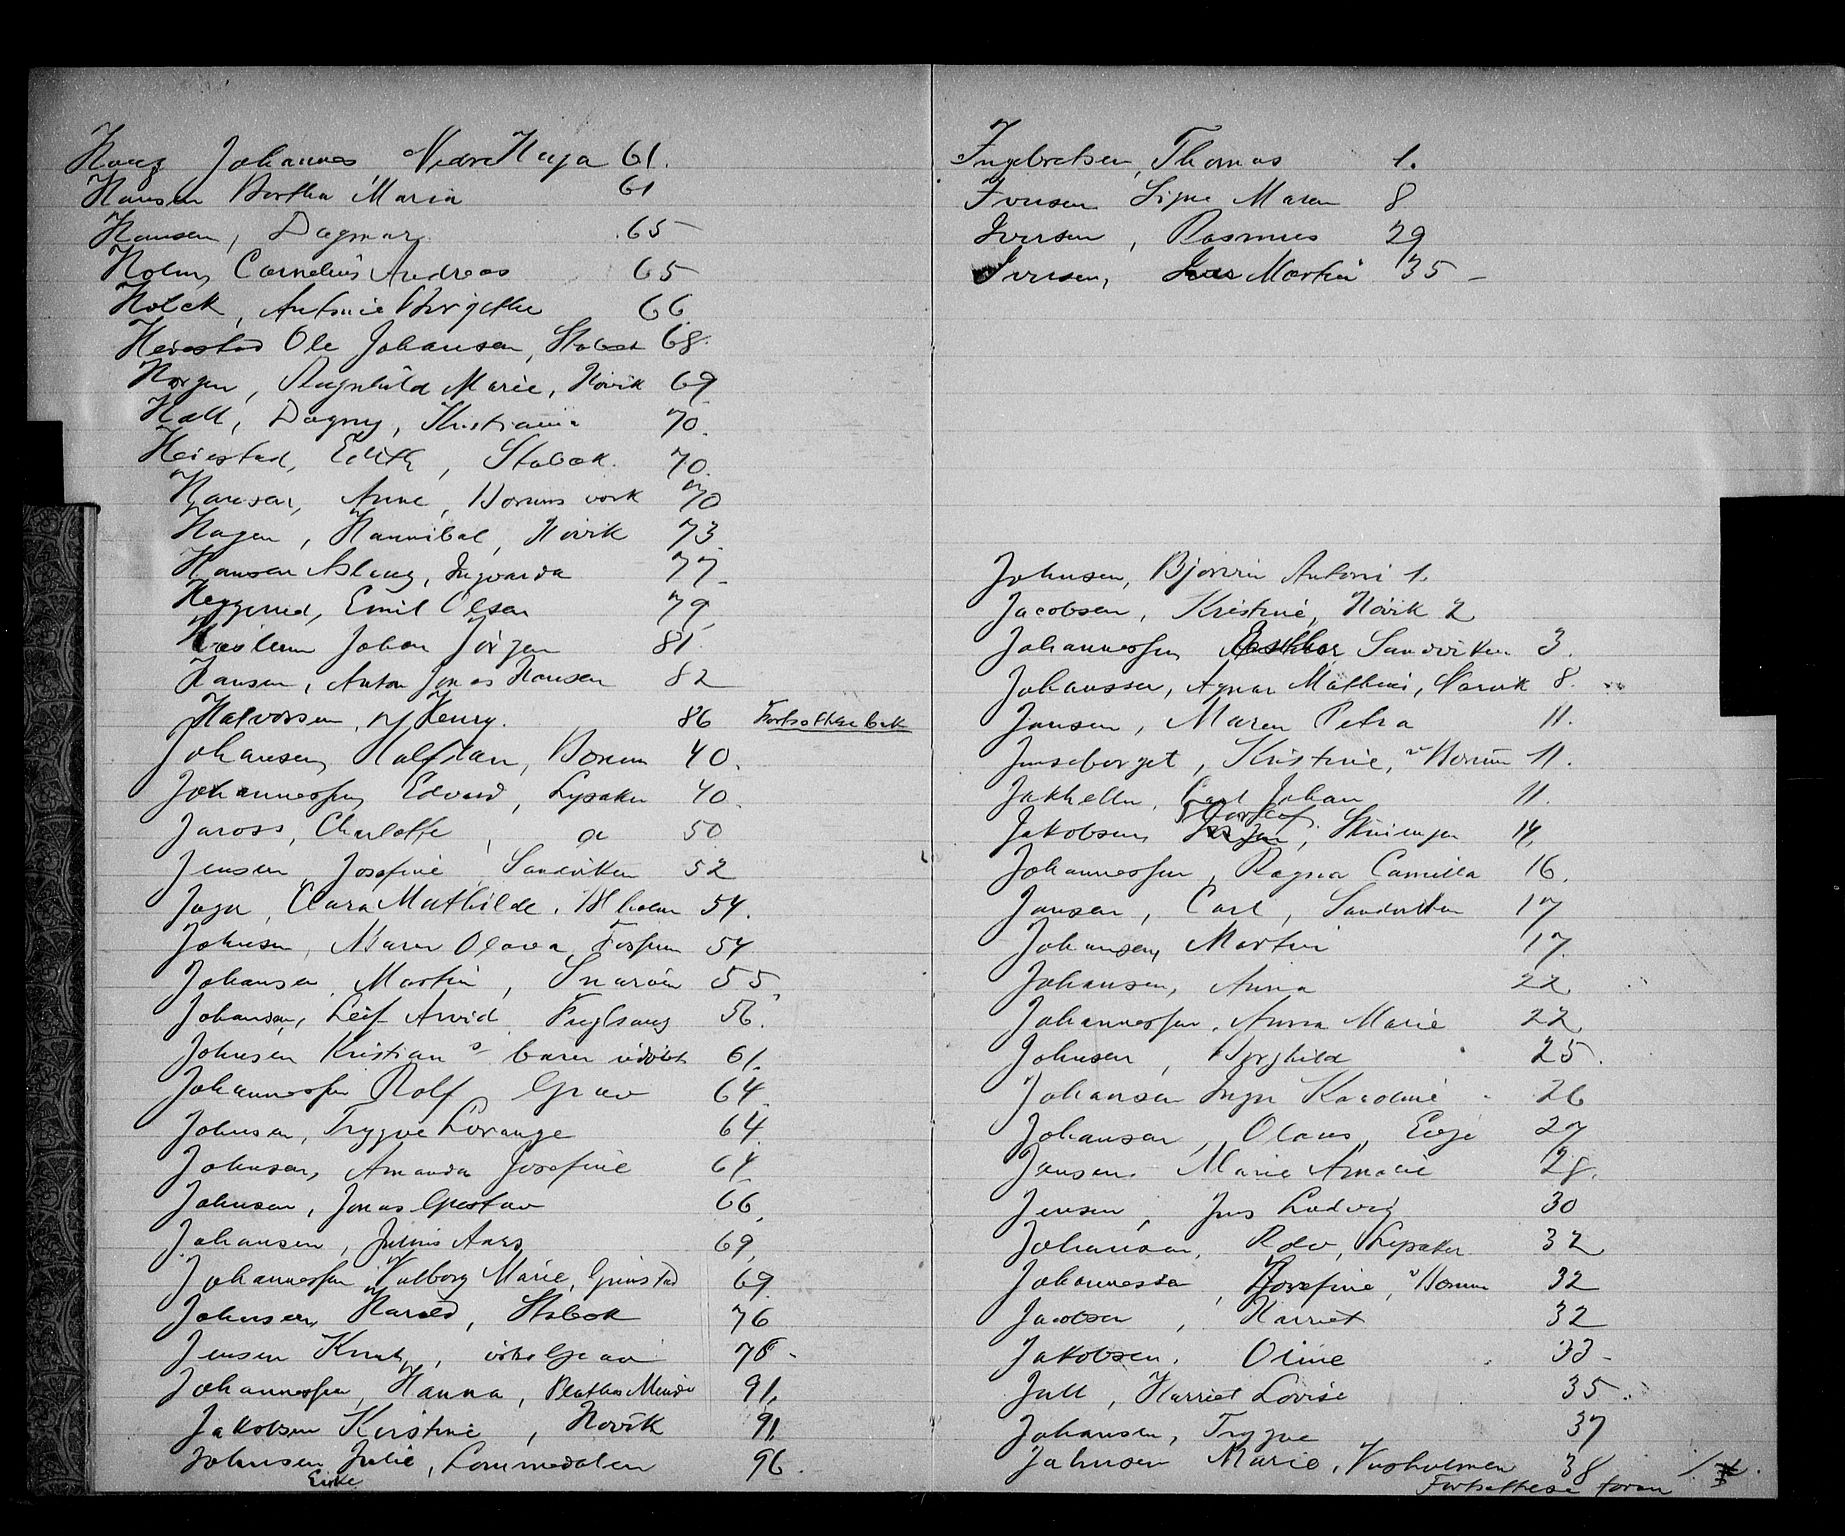 Haug Johannes Nedre Haga 61.
Hansen Bertha Maria 61
Hansen, Dagmar 65
Holm, Cornelius Andreas 65
Holck, Antonie Birgithe 66
Heiestad Ole Johansen, Stabæk 68.
Horgen, Ragnhild Marie, Høvik 69
Hall, Dagny, Kristiania 70.
Heiestad, Edith, Stabæk. 70.
Hansen, Anne, Bærums værk 70
Hagen, Hannibal, Høvik 73
Hansen Aslaug, Ingvarda 77
Heggerud, Emil Olsen 79
Johan Jörgen 81.
Hansen, Anton Jonas Hansen 82
Halvorsen, Henry. 86 Fortsættes bak
Johansen, Halfdan, Bærum 40.
Johannessen, Edvard, Lysaker 40.
Jaross, Charlotte, do 50
Jensen, Josefine, Sandviken 52
Clara Mathilde, 54.
Johnsen, Maren Olava, Fossum 54
Johansen, Martin, Snarøen 55.
Johansen, Leif Arvid, Fuglsang 56.
Johnsen Kristian s barn udöbt 61.
Johannessen Rolf Grav 64.
Johnsen, Trygve Lorange 64.
Johnsen, Amanda Josefine 64
Johnsen, Jonas Gustav 66.
Johansen, Julius 69.
Johannessen, Valborg Marie, Grinstad 69
Johnsen, Harald, Stabæk 76
Jensen Knut, Grav 78.
Johannessen, Hanna, 91.
Jakobsen Kirstine, Høvik 91.
Johnsen Julie, Lommedalen 96.
Enke
Ingebretsen, Thomas 1.
Iversen Signe Maren 8
Iversen, Rasmus 29
Iversen, Martin 35
Johnsen, Antoni 1.
Jacobsen, Kristine, Høvik 2
Johannessen Esther Sandviken 3.
Johanssen, Agnar Mathias, 8.
Jansen, Maren Petra 11.
Kristine, Bærum 11.
Jakhelln, Carl Johan 11.
Jakobsen, 14.
Johannessen, Ragna Camilla 16.
Jansen, Carl, Sandviken 17
Johansen, Martin 17.
Johansen, Anna 22
Johannessen, Anna Marie 22
Johnsen, Borghild 25.
Johansen Inga Karoline 26
Johansen, Olaus, Eije 27
Jensen, Marie Amalie 28.
Jensen, Jens Ludvig 30
Johansen, Lysaker 32
Johannessen, Josefine, Bærum 32
Jacobsen, Harriet 32
Jakobsen, Oline 33
Jull, Harriet Lovise 35.
Johansen, Trygve 37
Johnsen Marie, 38
Fortsættes foran